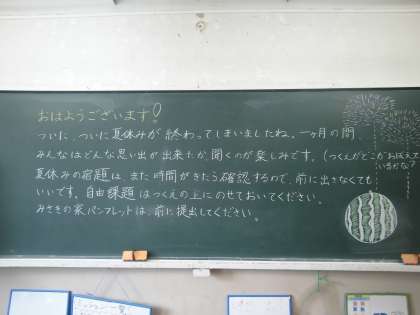 おはようございます!
ついに、ついに夏休みが終わってしまいましたね。一ヶ月の間、
みんなはどんな思い出が出来たか、聞くのが楽しみです。(つくえがどこかおぼえているかな?
夏休みの宿題は、また時間がきたら確認するので、前に出さなくても
いいです。自由課題はつくえの上にのせておいてください。
みさきの家パンフレットは、前に提出してください。